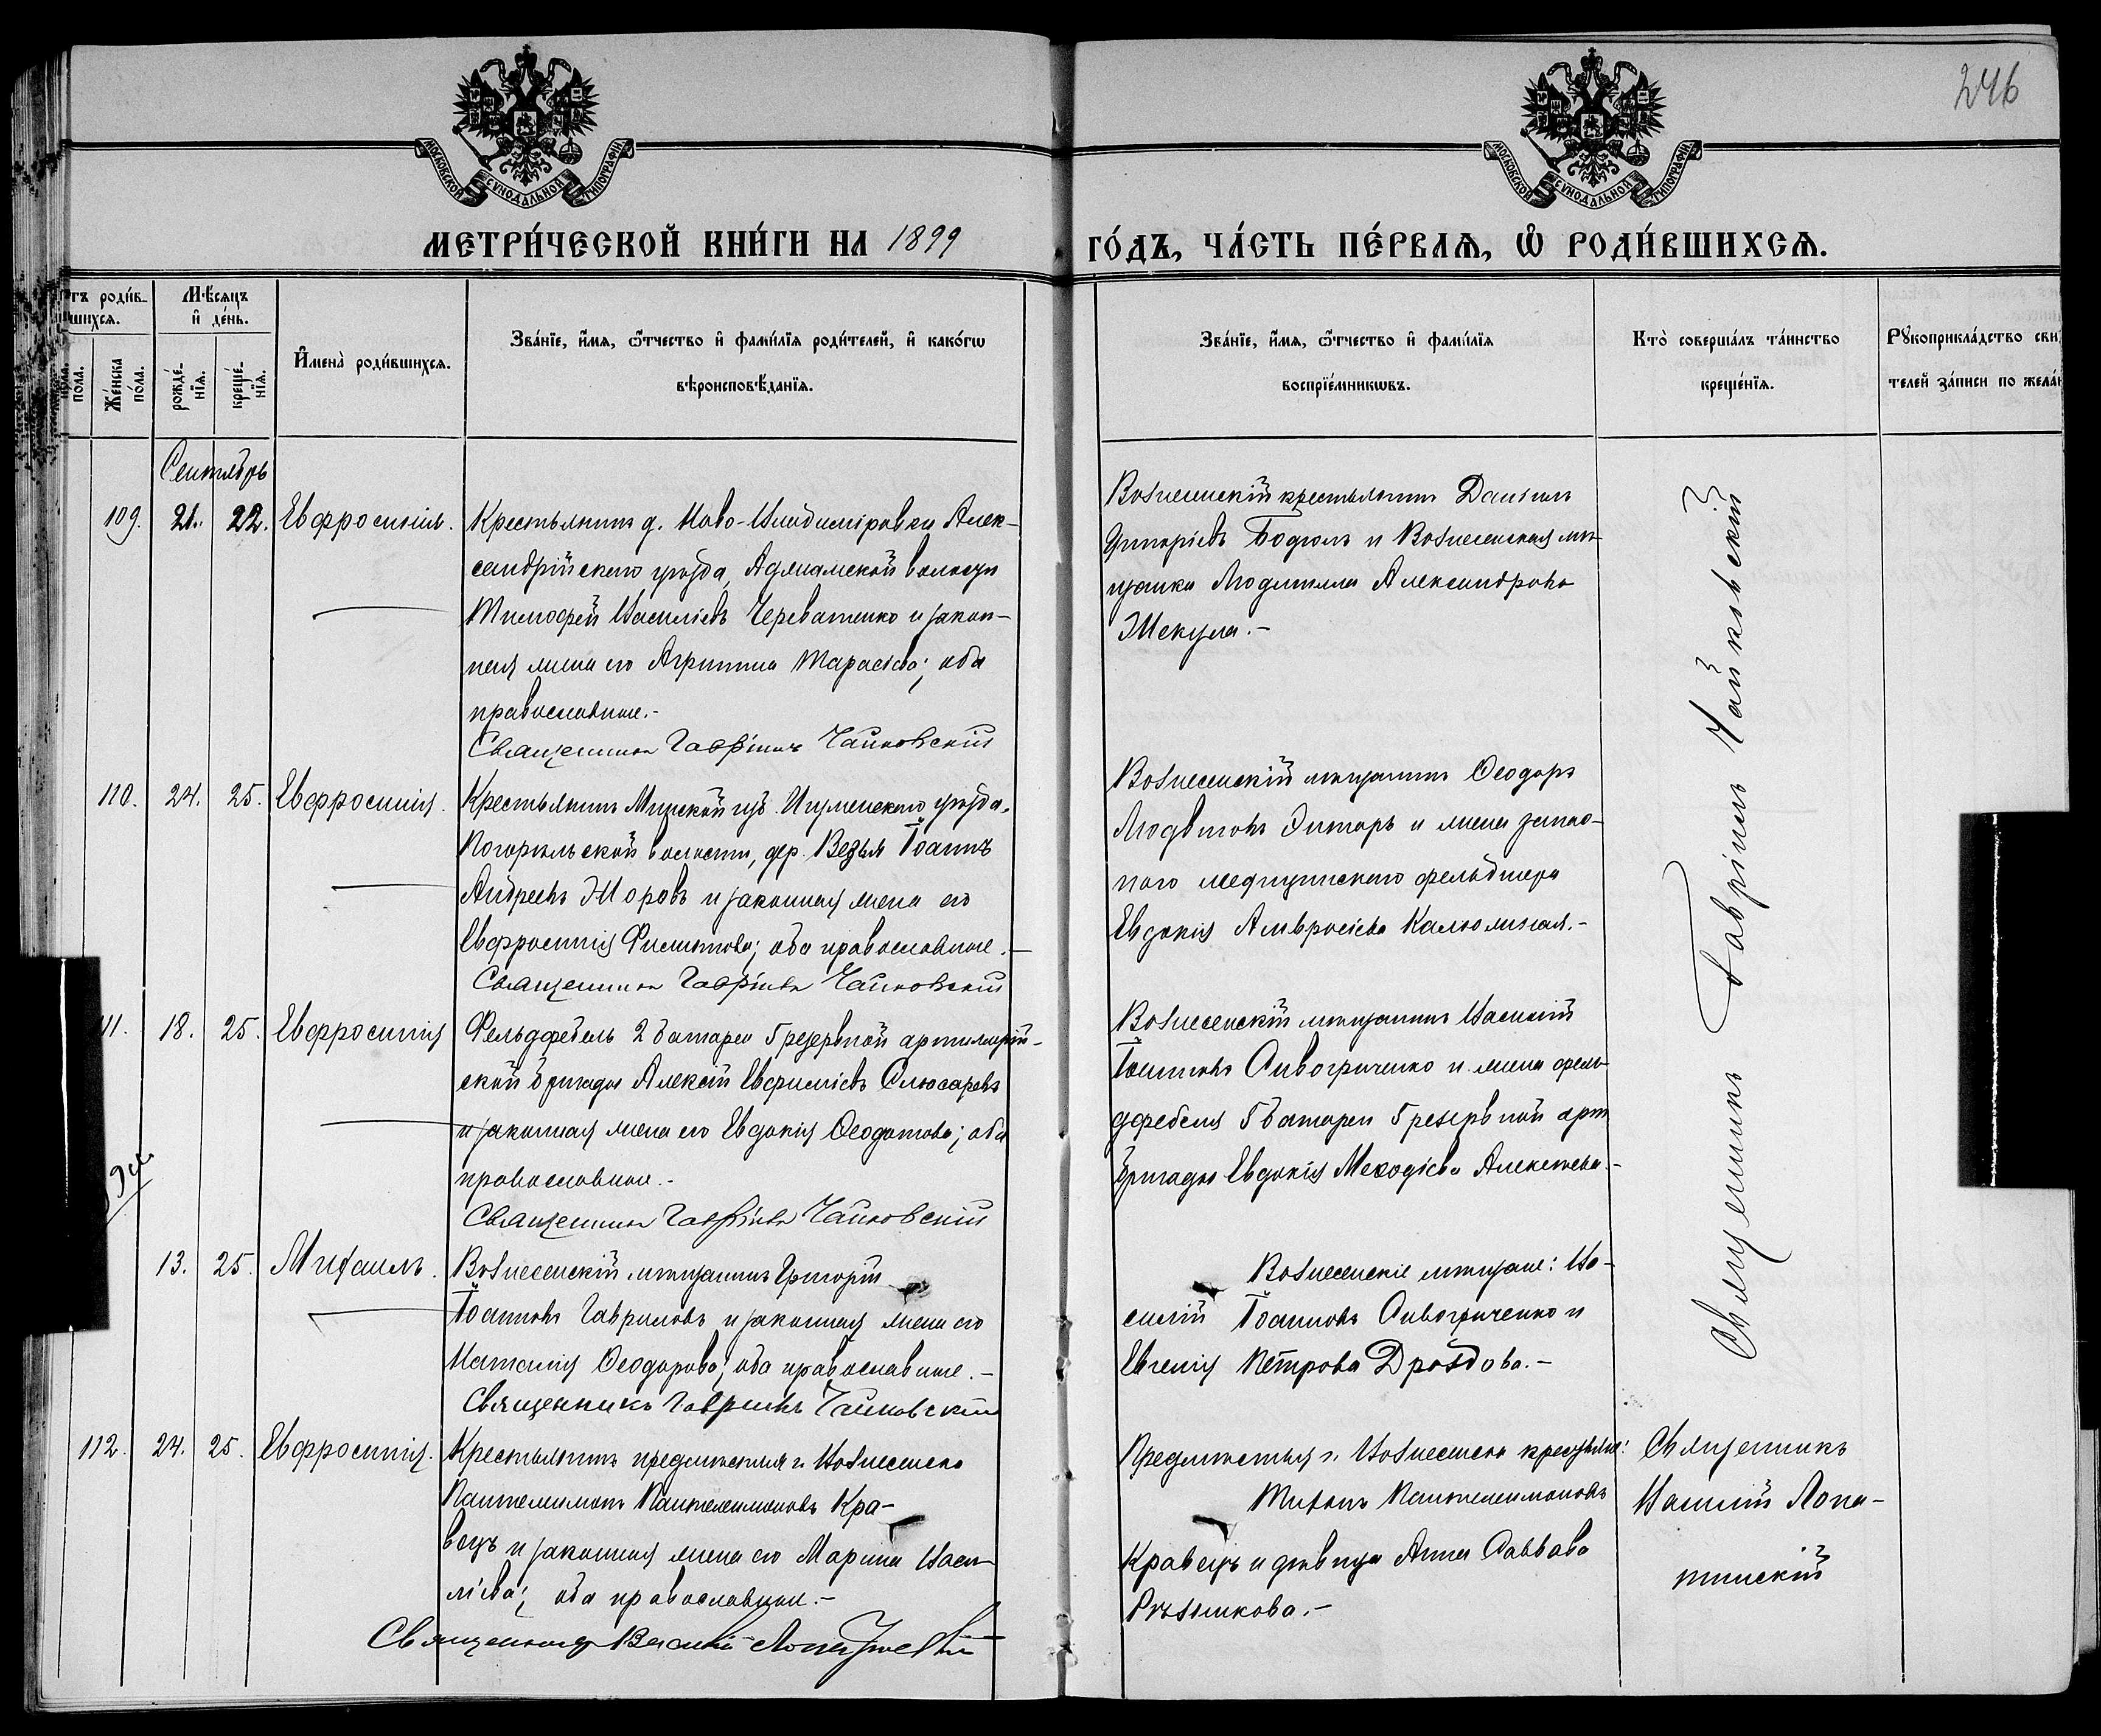 246
МОСКОВСКОЙ СѴНОДАЛЬНОЙ ТИПОГРАФІИ
МОСКОВСКОЙ СѴНОДАЛЬНОЙ ТИПОГРАФІИ
МЕТРИ́ЧЕСКОЙ КНИ́ГИ НА 1899
ГО́ДЪ, ЧА́СТЬ ПЕ́РВАѦ, Ѽ РОДИ́ВШИХСѦ.
тъ роди́в-
шихсѧ.
Мѣ́сѧцъ
и҆ де́нь.
пола.
Же́нска
по́ла.
рожде́-
нїѧ.
креще́-
нїѧ.
И҆мена̀ роди́вшихсѧ.
Зва́нїе, и҆́мѧ, ѻ҆́тчество и҆ фами́лїѧ роди́телей, и҆ како́гѡ
вѣроисповѣ́данїѧ.
Зва́нїе, и҆́мѧ, ѻ҆́тчество и҆ фами́лїѧ
воспрїе́мникѡвъ.
Кто̀ соверша́лъ та́инство
креще́нїѧ.
Рꙋкоприкла́дство сви
телей за́писи по жела́
Сентябрь
109. 21. 22. Евфросинія.
Крестьянинъ д. Ново-Владиміровки Алек-
сандрійскаго уѣзда, Аджамской волости
Тимофей Василіевъ Череватенко и закон-
ная жена его Агриппина Тарасіева; оба
православные.-
Священникъ Гавріилъ Чайковскій
Вознесенскій крестьянинъ Даніилъ
Григоріевъ Бодюлъ и Вознесенская мѣ-
щанка Людмилла Александрова
Жекула.-
110. 24. 25. Евфросинія.
Крестьянинъ Минской губ. Игуменскаго уѣзда,
Погорѣльской волости, дер. Іоаннъ
Андреевъ Жоровъ и законная жена его
Евфросинія Филиппова; оба православные.-
Священникъ Гавріилъ Чайковскій
Вознесенскій мѣщанинъ Ѳеодоръ
Людвиговъ и жена запас-
наго медицинскаго фельдшера
Евдокія Амвросіева.-
111. 18. 25. Евфросинія
Фельдфебель 2 батареи 5 резервной артиллерій-
ской бригады Алексій Евфиміевъ Слюсаревъ
и законная жена его Евдокія Ѳеодотова; оба
православные.-
Священникъ Гавріилъ Чайковскій
Вознесенскій мѣщанинъ Василій
Іоанновъ Сивогриченко и жена фель-
дфебеля 5 батареи 5 резервной арт
бригады Евдокія Меѳодіева Алексѣева.-
13. 25. Михаилъ.
Вознесенскій мѣщанинъ Григорій
Іоанновъ Гавриловъ и законная жена его
Наталія Ѳеодорова; оба православные.-
Священникъ Гавріилъ Чайковскій
Вознесенскіе мѣщане: Ва-
силій Іоанновъ Сивогриченко и
Евгенія Петрова Дроздова.-
Священникъ Гавріилъ Чайковскій
112. 24. 25. Евфросинія.
Крестьянинъ предмѣстья г. Вознесенска
Пантелеимонъ Пантелеимоновъ Кра-
вецъ и законная жена его Марина Васи-
ліева; оба православные.-
Священникъ Василій Лопатинскій
Предмѣстья г. Вознесенска крестьяне:
Тихонъ Пантелеимоновъ
Кравецъ и дѣвица Анна Саввова
Рѣзникова.-
Священникъ
Василій Лопа-
тинскій